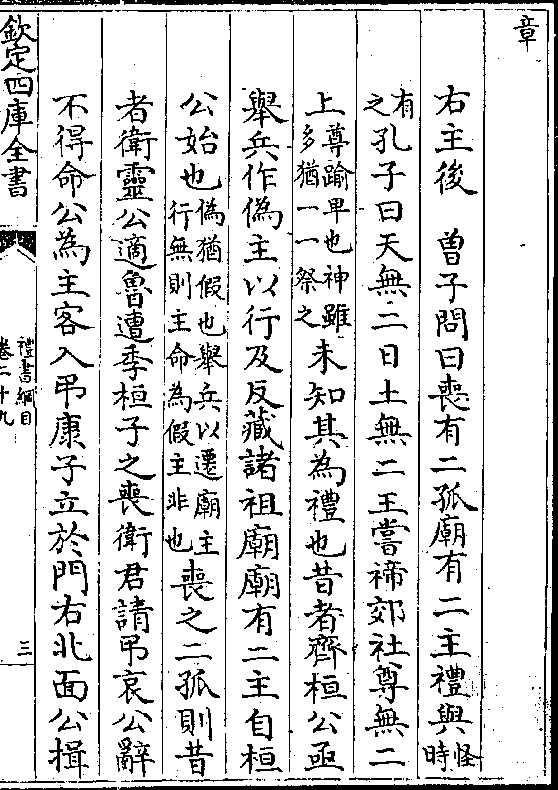 章
右主後　曽子問曰喪有二孤廟有二主禮與怪時
有之孔子曰天無二日土無二王嘗禘郊社尊無二
上尊踰卑也神雖多猶一一祭之未知其為禮也昔者齊桓公亟
舉兵作偽主以行及反藏諸祖廟廟有二主自桓
公始也偽猶假也舉兵以遷廟主行無則主命為假主非也喪之二孤則昔
者衛靈公適魯遭季桓子之喪衛君請弔哀公辭
不得命公為主客入弔康子立於門右北面公揖
欽定四庫全書
禮書綱目
卷二十九
三